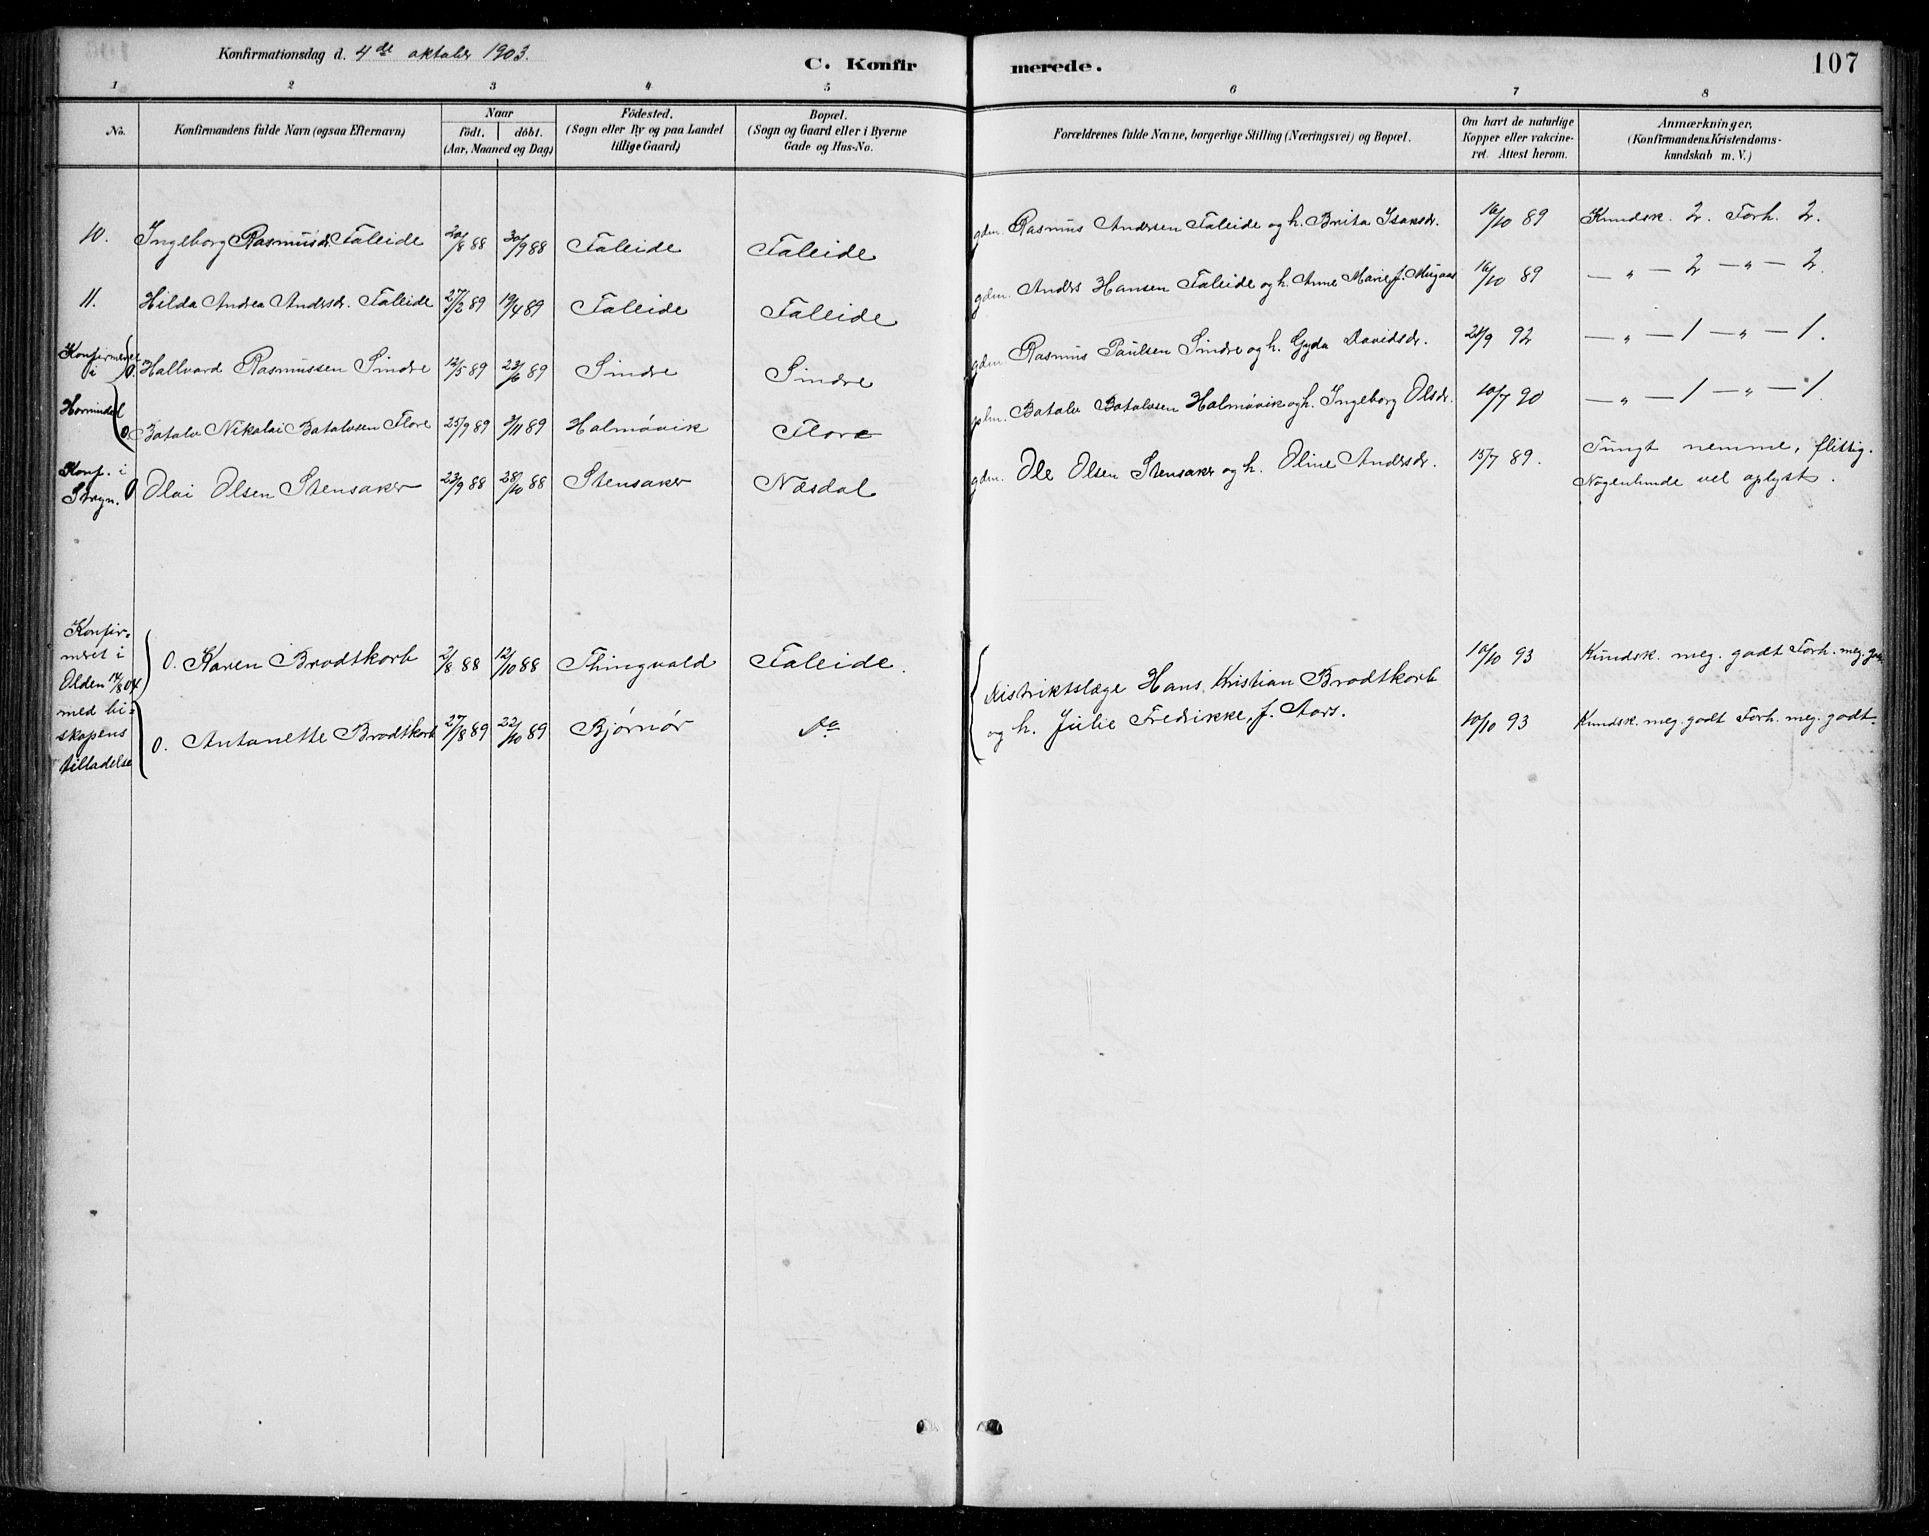 Konfirmationsdag d. 4de oktober 1903.
C. Konfirmerede.
107
1 2 3 4 5 6 7 8
No.
Konfirmandens fulde Navn (ogsaa Efternavn)
Naar
födt. döbt.
(Aar, Maaned og Dag)
Födested.
(Sogn eller By og paa Landet
tillige Gaard)
Bopæl.
(Sogn og Gaard eller i Byerne
Gade og Hus-No.
Forældrenes fulde Navne, borgerlige Stilling (Næringsvei) og Bopæl.
Om havt de naturlige
Kopper eller vakcine-
ret. Attest herom.
Anmærkninger,
(Konfirmandens Kristendoms-
kundskab m. V.)
10. Ingeborg Rasmusdr. Faleide 20/8 88 30/9 88 Faleide Faleide gdm. Rasmus Andersen Faleide og h. Brita Isaksdr. 16/10 89 Kundsk. 2. Forh. 2.
11. Hilda Andrea Andersdr. Faleide 27/2 89 19/4 89 Faleide Faleide gdm. Anders Hansen Faleide og h. Anne Marie f. Mugaas 16/10 89 — „ — 2 — „ — 2.
Konfirmeret
i
Hornindal
0. Hallvard Rasmussen Sindre 12/5 89 23/6 89 Sindre Sindre gdm. Rasmus Paulsen Sindre og h. Gyda Davidsdr. 28/9 92 — „ — 1 — „ — 1.
0. Batalv Nikolai Batalvsen Flore 25/9 89 3/11 89 Holmøvik Flore plm. Batalv Batalvsen Holmøvik og h. Ingeborg Olsdr. 10/7 90 — „ — 1 — „ — 1.
Konf. i
Stryn.
0 Olai Olsen Stensaker 23/9 88 28/10 88 Stensaker Næsdal gdm. Ole Olsen Stensaker og h. Oline Andersdr. 15/7 89. Tungt nemme, flittig.
Nogenlunde vel oplyst.
Konfir-
meret i
Olden 14/8 04
med bi-
skopens
tilladelse
0. Karen Brodtkorb 2/8 88 12/10 88 Thingvold Faleide. 10/10 93 Kundsk. meg. godt Forh. meg. godt
Distriktslæge Hans Kristian Brodtkorb
og h. Julie Fredrikke, f. Aars.
0. Antonette Brodtkorb 27/8 89 22/10 89 Bjørnør Do 10/10 93 Kundsk. meg. godt Forh. meg. godt.